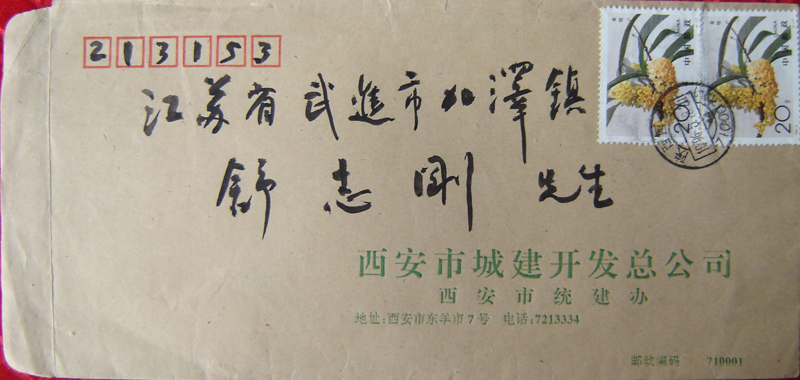 213153
江苏省武進市加澤鎮
舒志刚 先生
西安市城建开发总公司
西安市统建办
地址:西安市东羊市7号 电话:7213334
邮政编码 710001
20
20